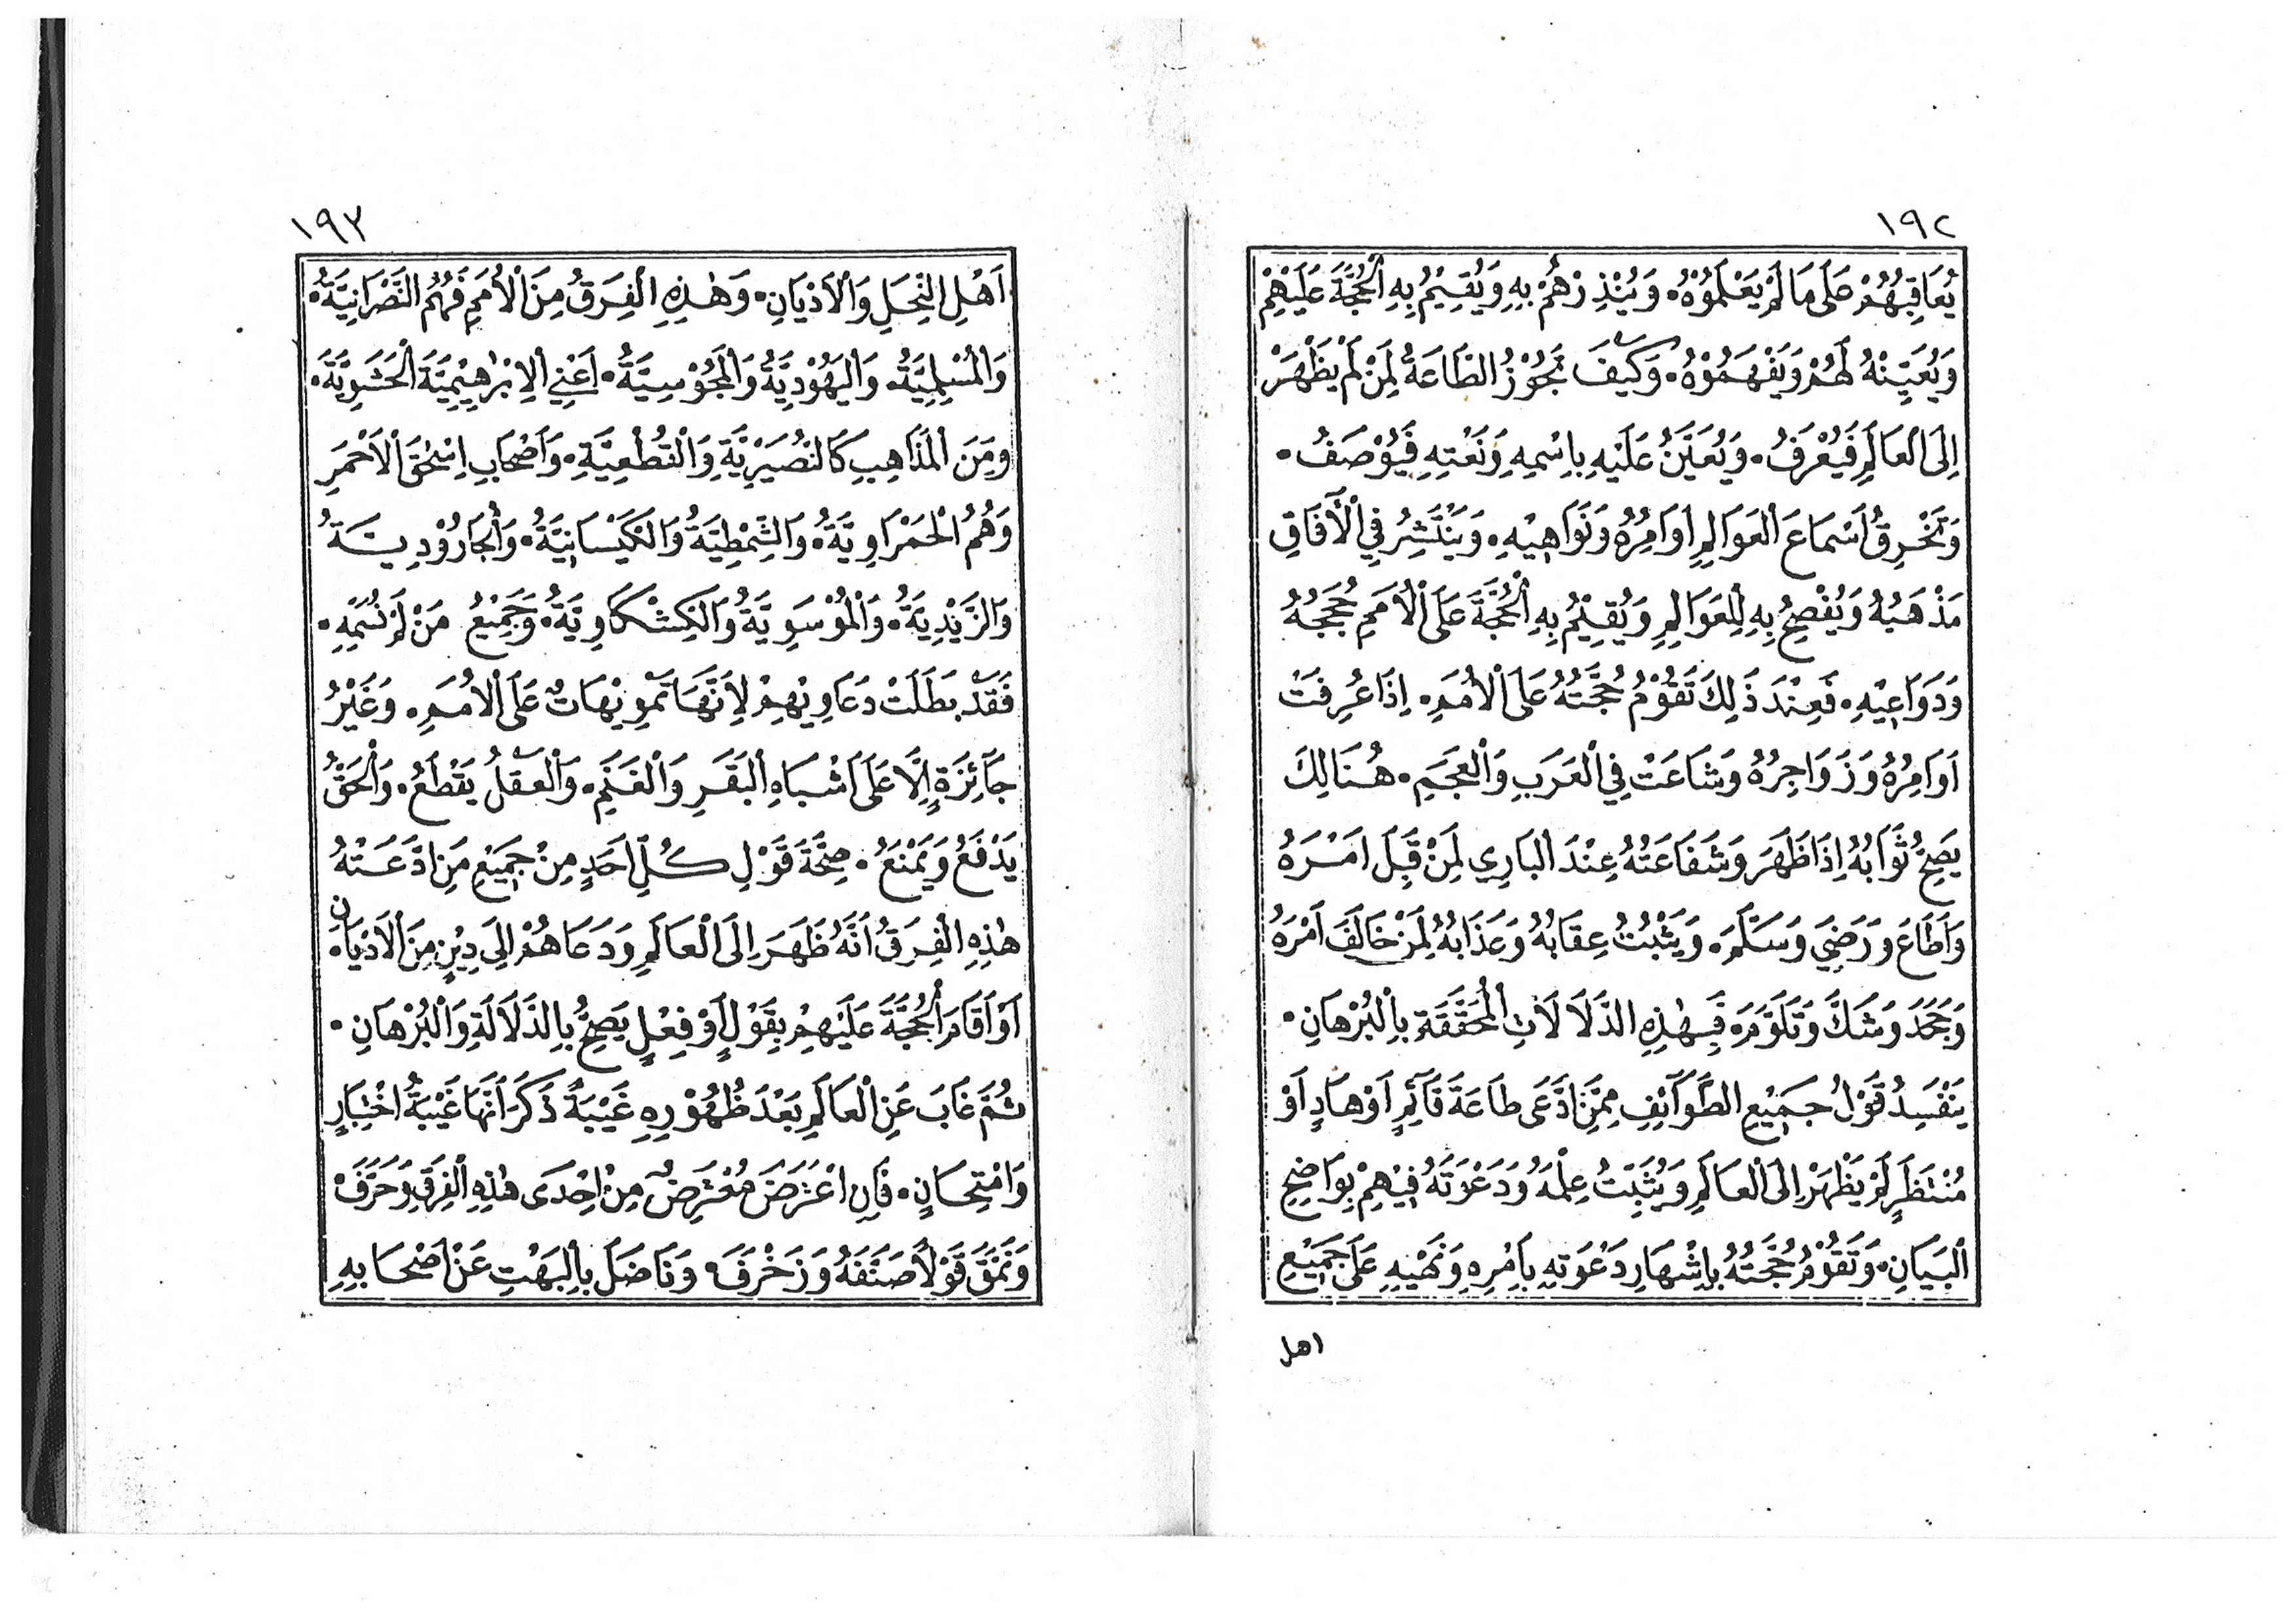 ١٩٢
يُعَاقِبُهُمْ عَلَى مَا لَمْ يَعْلَمُوْهُ. وَيُنْذِرْهُمْ بِهِ وَيُقِيْمُ بِهِ الْحُجَّةَ عَلَيْهِمْ
وَيُعَيِّنْهُ لَهُمْ وَيَفْهَمُوْهُ. وَكَيْفَ تَجُوْزُ الطَّاعَةُ لِمَنْ لَمْ يَظْهَرْ
اِلَى الْعَالَمِ فَيُعْرَفُ. وَيُعَيَّنُ عَلَيْهِ بِاسْمِهِ وَنَعْتِهِ فَيُوْصَفُ.
وَتَخْرِقُ اَسْمَاعَ الْعَوَالِمِ اَوَامِرُهُ وَنَوَاهِيْهِ. وَيَنْتَشِرُ فِي الْآفَاقِ
مَذْهَبُهُ وَيُفْصِحُ بِهِ لِلْعَوَالِمِ وَيُقِيْمُ بِهِ الْحُجَّةَ عَلَى الْاُمَمِ حُجَجُهُ
وَدَوَاعِيْهِ. فَعِنْدَ ذَلِكَ تَقُوْمُ حُجَّتُهُ عَلَى الْاُمَمِ. اِذَا عُرِفَتْ
اَوَامِرُهُ وَزَوَاجِرُهُ وَشَاعَتْ فِي الْعَرَبِ وَالْعَجَمِ. هُنَالِكَ
يَصِحُّ ثَوَابُهُ اِذَا ظَهَرَ وَشَفَاعَتُهُ عِنْدَ الْبَارِي لِمَنْ قَبِلَ اَمْرَهُ
وَاَطَاعَ وَرَضِيَ وَسَلَّمَ. وَيَثْبُتُ عِقَابُهُ وَعَذَابُهُ لِمَنْ خَالَفَ اَمْرَهُ
وَجَحَدَ وَشَكَّ وَتَلَوَّمَ. فَبِهٰذِهِ الدَّلَالَاتِ الْمُحَقَّقَةِ بِالْبُرْهَانِ.
يَفْسِدُ قَوْلُ جَمِيْعِ الطَّوَآئِفِ مِمَّنِ ادَّعَى طَاعَةَ قَآئِمٍ اَوْ هَادٍ اَوْ
مُنْتَظَرٍ لَمْ يَظْهَرْ اِلَى الْعَالَمِ وَيُثَبِّتُ عِلْمَهُ وَدَعْوَتَهُ فِيْهِمْ بِوَاضِحِ
الْبَيَانِ. وَتَقُوْمُ حُجَّتُهُ بِاِشْهَارِ دَعْوَتِهِ بِاَمْرِهِ وَنَهْيِهِ عَلَى جَمِيْعِ
اهل
١٩٣
اَهْلِ النِّحَلِ وَالْاَدْيَانِ. وَهٰذِهِ الْفِرَقُ مِنَ الْاُمَمِ فَهُمُ النَّصْرَانِيَّةُ.
وَالْمُسْلِمِيَّةُ. وَالْيَهُوْدِيَّةُ وَالْمَجُوْسِيَّةُ. اَعْنِي الْاِبْرٰهِيْمِيَّةَ الْحَشَوِيَّةَ.
وَمِنَ الْمَذَاهِبِ كَالنُّصَيْرِيَّةِ وَالْقُطْعِيَّةِ. وَاَصْحَابِ اِسْحٰقَ الْاَحْمَرِ
وَهُمُ الْحَمْرَاوِيَّةُ. وَالشَّمْطِيَّةُ وَالْكَيْسَانِيَّةُ. وَالْجَارُوْدِيَّةُ
وَالزَّيْدِيَّةُ. وَالْمُوْسَوِيَّةُ وَالْكِشْكَاوِيَّةُ. وَجَمِيْعُ مَنْ لَمْ نُسَمِّهِ.
فَقَدْ بَطَلَتْ دَعَاوِيْهِمْ لِاَنَّهَا تَمْوِيْهَاتٌ عَلَى الْاُمَمِ. وَغَيْرُ
جَآئِزَةٍ اِلَّا عَلَى اَشْبَاهِ الْبَقَرِ وَالْغَنَمِ. وَالْعَقْلُ يَقْطَعُ. وَالْحَقُّ
يَدْفَعُ وَيَمْنَعُ. صِحَّةَ قَوْلِ كُلِّ اَحَدٍ مِنْ جَمِيْعِ مَنِ ادَّعَتْهُ
هٰذِهِ الْفِرَقُ اَنَّهُ ظَهَرَ اِلَى الْعَالَمِ وَدَعَاهُمْ اِلَى دِيْنٍ مِنَ الْاَدْيَانِ.
اَوْ اَقَامَ الْحُجَّةَ عَلَيْهِمْ بِقَوْلٍ اَوْ فِعْلٍ يَصِحُّ بِالدَّلَالَةِ وَالْبُرْهَانِ.
ثُمَّ غَابَ عَنِ الْعَالَمِ بَعْدَ ظُهُوْرِهِ غَيْبَةً ذَكَرَ اَنَّهَا غَيْبَةُ اخْتِبَارٍ
وَامْتِحَانٍ. فَاِنِ اعْتَرَضَ مُعْتَرِضٌ مِنْ اِحْدَى هٰذِهِ الْفِرَقِ وَحَرَّفَ
وَنَمَّقَ قَوْلًا صَنَّفَهُ وَزَخْرَفَ. وَنَاضَلَ بِالْبَهْتِ عَنْ اَصْحَابِهِ